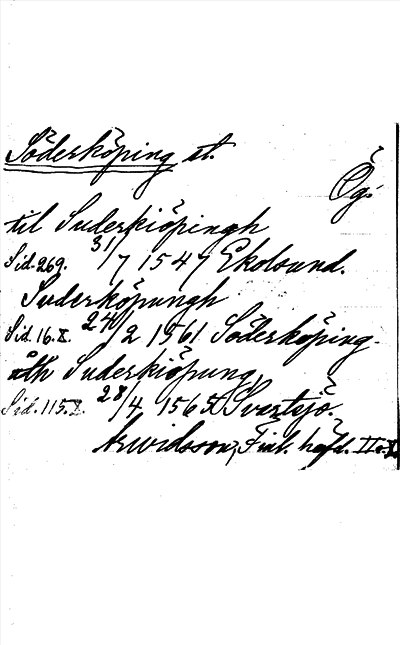 Söderköping st.
Ög.
til Suderkiöpingh
Sid. 269. 31/7 1547 Ekolsund.
Suderköpungh
Sid. 16. 24/2 1561 Söderköping.
åth Suderkiöpung
Sid. 115. 28/4 1565 Svartsjö.
Arwidsson, Finl. häfd. II